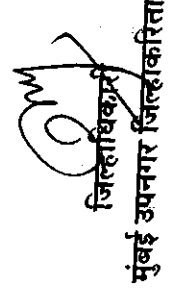 जिल्हाधिकारी
मुंबई उपनगर जिल्हाकरिता